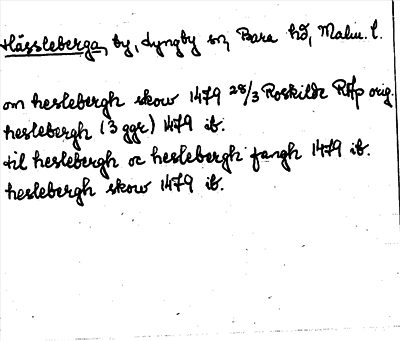 Hässleberga, by, Lyngby sn, Bara hd, Malm. l.
om heslebergh skow 1479 28/3 Roskilde RAp orig.
heslebergh (3 ggr) 1479 ib.
til heslebergh oc heslebergh fangh 1479 ib.
heslebergh skow 1479 ib.